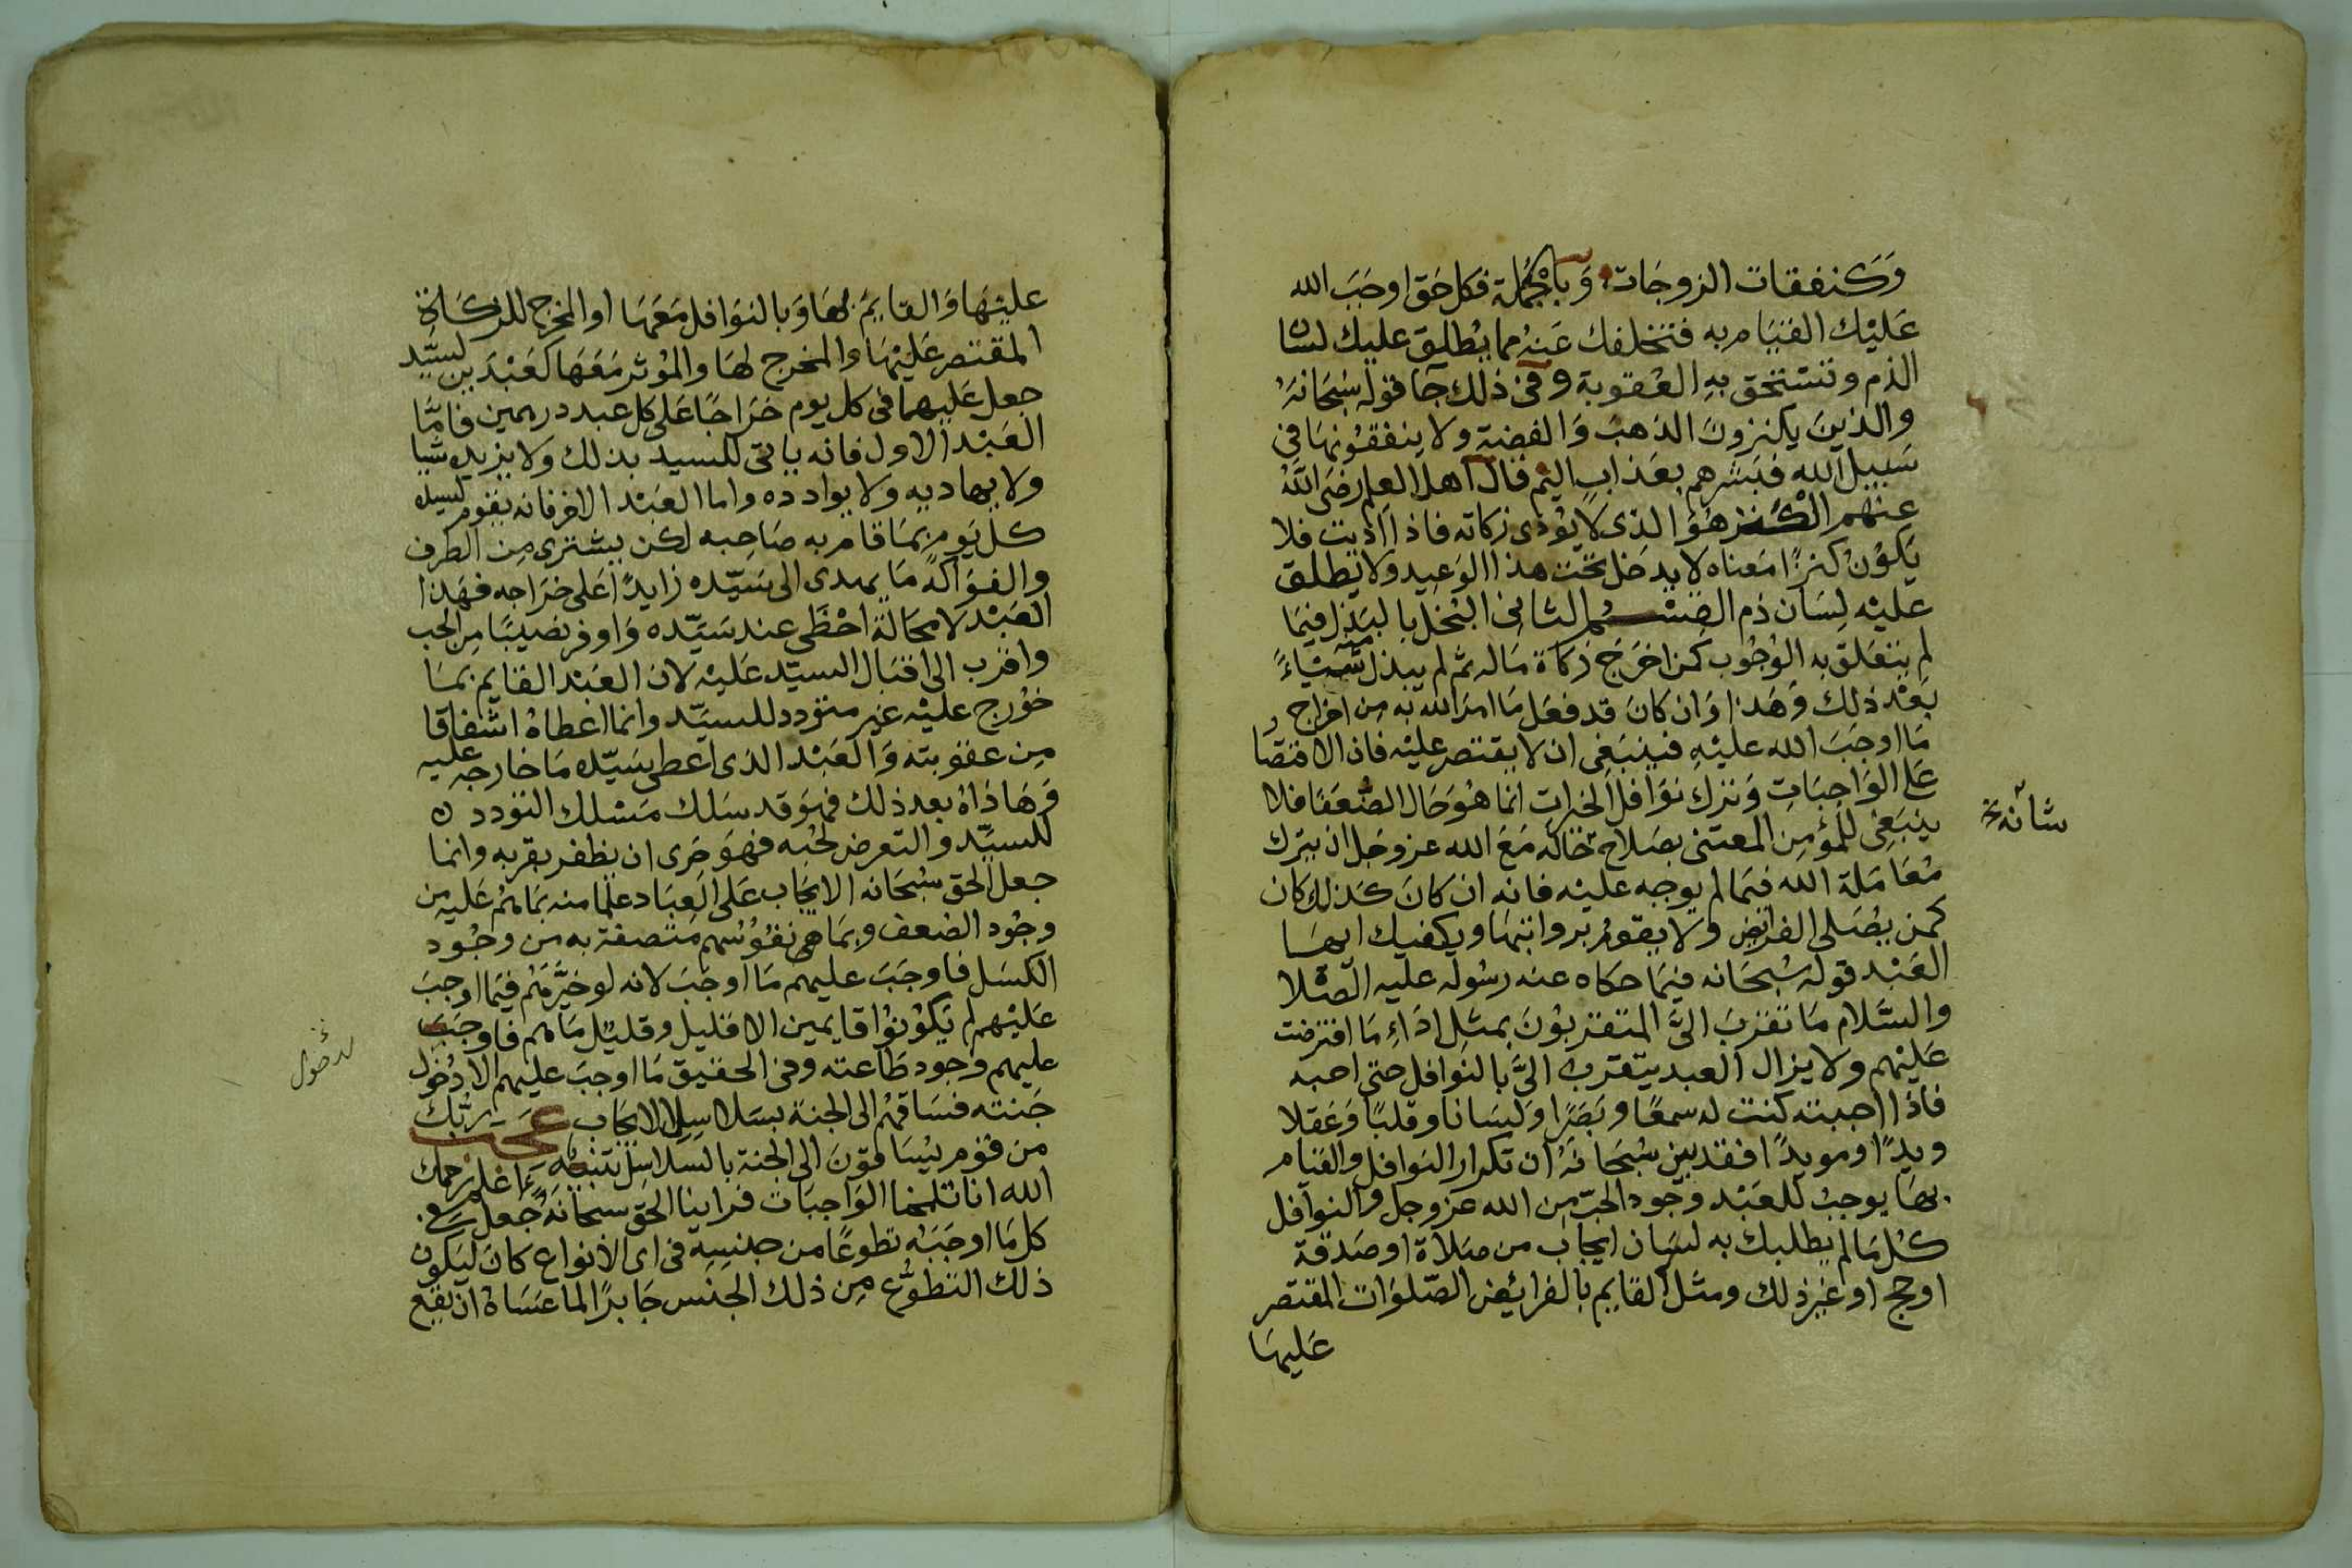 وَكنفقات الزوجَات وَبالجُملة فكل حَق اوجَبَ الله
عَليْك القيَام به فتخلفك عَنهُ مما يُطلق عليك لسان
الذم وتستحق بهِ العُقوبة وفى ذلك جا قوله سُبحَانهُ
والذينَ يكنزونَ الذهبَ وَالفضة ولا ينفقوُنهَا فى
سَبيل الله فبَشرهم بعَذاب اليم قال اهل العِلم رضَى اللهُ
عنهُم الكنز هوَ الذى لا يُؤدى زكاته فاذا اديت فلا
يَكوُن كنزًا مَعناه لا يدخل تحت هذا الوَعيد ولا يطلق
عليْه لِسَان ذم القِسْم الثانى البُخل بالبَذل فيمَا
لم يتعَلق به الوُجُوب كمن اخرَجَ زكاة مَاله ثم لم يبذل منه شيَاءً
بَعْد ذلك وَهَذا وَان كانَ قد فعَل مَا امرَ الله به مِن اخراج
مَا اوجَبَ الله عليْهِ فينبَغى ان لا يقتصر عليْه فان الاقتصَار
عَلى الوَاجبَاتِ وَترك نوَافل الخيراتِ انما هوَ حَال الضُّعَفا فلا
ينبَغِى للمُؤمِن المعتنى بصَلاح حَاله مَعَ الله عز وجَل ان يترك
شانه خ
مُعَامَلة الله فيمَا لم يوجبه عليْه فانه ان كانَ كذلك كان
كمن يصَلى الفرائض ولا يقوُم برواتبهَا ويكفيك ايهَا
العَبْد قوله سُبحَانه فيمَا حكاه عنه رسُوله عليه الصّلاة
والسَّلام مَا تقرّبَ الىَّ المتقربُونَ بمثل ادَاءِ مَا افترضت
عَليْهم ولا يزال العبد يتقرب الىَّ بالنوَافل حتى احبه
فاذا احببته كنت له سمعًا وبَصَرًا وَلسَانا وقلبًا وَعَقلا
ويدًا ومويدًا فقد بين سُبحَانهُ ان تكرار النوَافل والقيَام
بهَا يوجبُ للعَبْد وجُود الحبّ مِن الله عز وجل والنوَافل
كُل مَا لم يطلبك به لسَان ايجَاب من صَلاة او صَدقة
او حج او غير ذلك ومثل القايم بالفرائِض الصّلوَات المقتصر
عَليهَا
عليْهَا وَالقايمَ بهَا وَبالنوَافل مَعَهَا او المخرج للزكاة
المقتصر عَليْهَا والمخرج لهَا والمُوثر مَعَهَا كعَبْدَين لسَيّد
جعل عَليهما فى كل يوم خَراجًا عَلى كل عبد درهمين فامَّا
العَبْد الاول فانه ياتى للسيد بذلك ولا يزيده شيا
ولا يهاديه ولا يوادده واما العَبْد الاخر فانه يقوم لسيده
كل يَوم بمَا قام به صَاحِبه لكن يشترى مِن الطرف
والفوَاكه مَا يهدى الى سَيّده زايدًا عَلى خَراجه فهَذا
العَبْد لا محَالة احْظَى عند سَيّده وَاوفر نصيبًا مِن الحب
واقرب الى اقبَال السيّد عَليْه لان العَبْد القايم بمَا
خوُرج عليْه غير متودد للسيَّد وانما اعطاهُ اشفاقا
مِن عقوبته وَالعَبْد الذى اعطى سَيّده مَا خارجه عليه
وَهَاداهُ بعد ذلك فهوَ قد سَلك مَسْلك التودد
للسيِّد والتعرض لحُبه فهوَ حَرى ان يظفر بقربه وانما
جعل الحق سُبْحَانه الايجَاب عَلى العِبَاد علمًا منه بمَا هُم عَليه من
وجُود الضعف وبمَا هى نفوُسُهم مُتصفة به من وجُود
الكسَل فاوجَبَ عليهم مَا اوجَبَ لانه لو خيَّرهَم فيمَا اوجب
عَليْهم لم يَكونوُا قايمين الا قليل وقليل مَا هم فاوجبَ
عليهم وجود طَاعته وفى الحقيق مَا اوجبَ عليهم الا دُخول
لدخول
جَنته فسَاقهُم الى الجنة بسَلاسِل الايجَاب عجب ربُّك
من قوُم يُسَاقوُنَ الى الجنة بالسلاسِل تنبيهٌ اعلم رحمك
الله انا تلمحنا الوَاجبَات فراينا الحق سبحَانهُ جُعل فى
كل مَا اوجَبَهُ تطوعًا من جنسِهِ فى اى الانواع كانَ ليكون
ذلك التطوُّع مِن ذلك الجنس جَابرًا لما عسَاهُ ان يقع